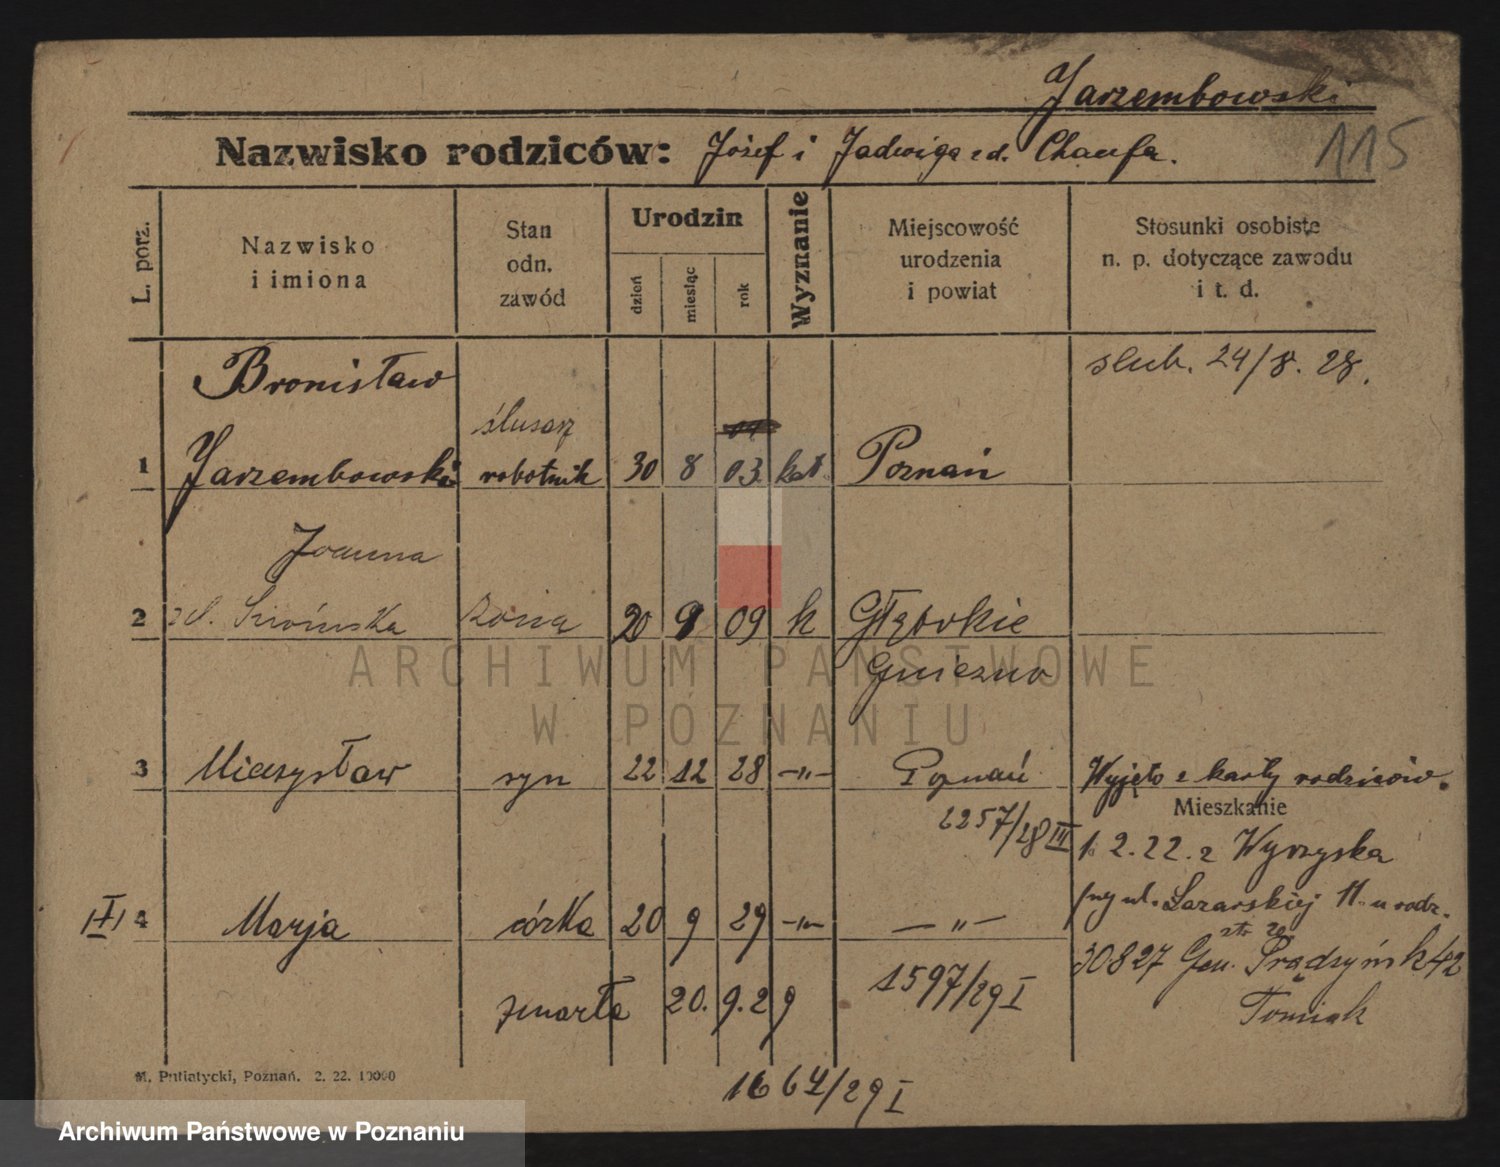 Jarzembowski
Nazwisko rodziców: Józef i Jadwiga zd. Chaufa.
115
L. porz.
Nazwisko
i imiona
Stan
odn.
zawód
Urodzin
dzień
miesiąc
rok
Wyznanie
Miejscowość
urodzenia
i powiat
Stosunki osobiste
n. p. dotyczące zawodu
i t. d.
Bronisław
ślub. 24/8. 28.
ślusarz
1 Jarzembowski robotnik 30 8 03. kat. Poznań
Joanna
2 zd. żona 20 9 09 k Głębokie
Gniezno
3 Mieczysław syn 22 12 28 —"— Poznań Wyjęto z karty rodziców.
2257/28 III
Mieszkanie
1. 2. 22. z Wyrzyska
przy ul. Łazarskiej 11. u rodz.
I 4 Marja córka 20 9 29 —"— —"—
30827 Gen. Prądzyńsk 42
Tomiak
zmarła 20. 9. 29
1597/29 I
1664/29 I
M. Putiatycki, Poznań. 2. 22. 10000
ARCHIWUM PAŃSTWOWE
W POZNANIU
Archiwum Państwowe w Poznaniu